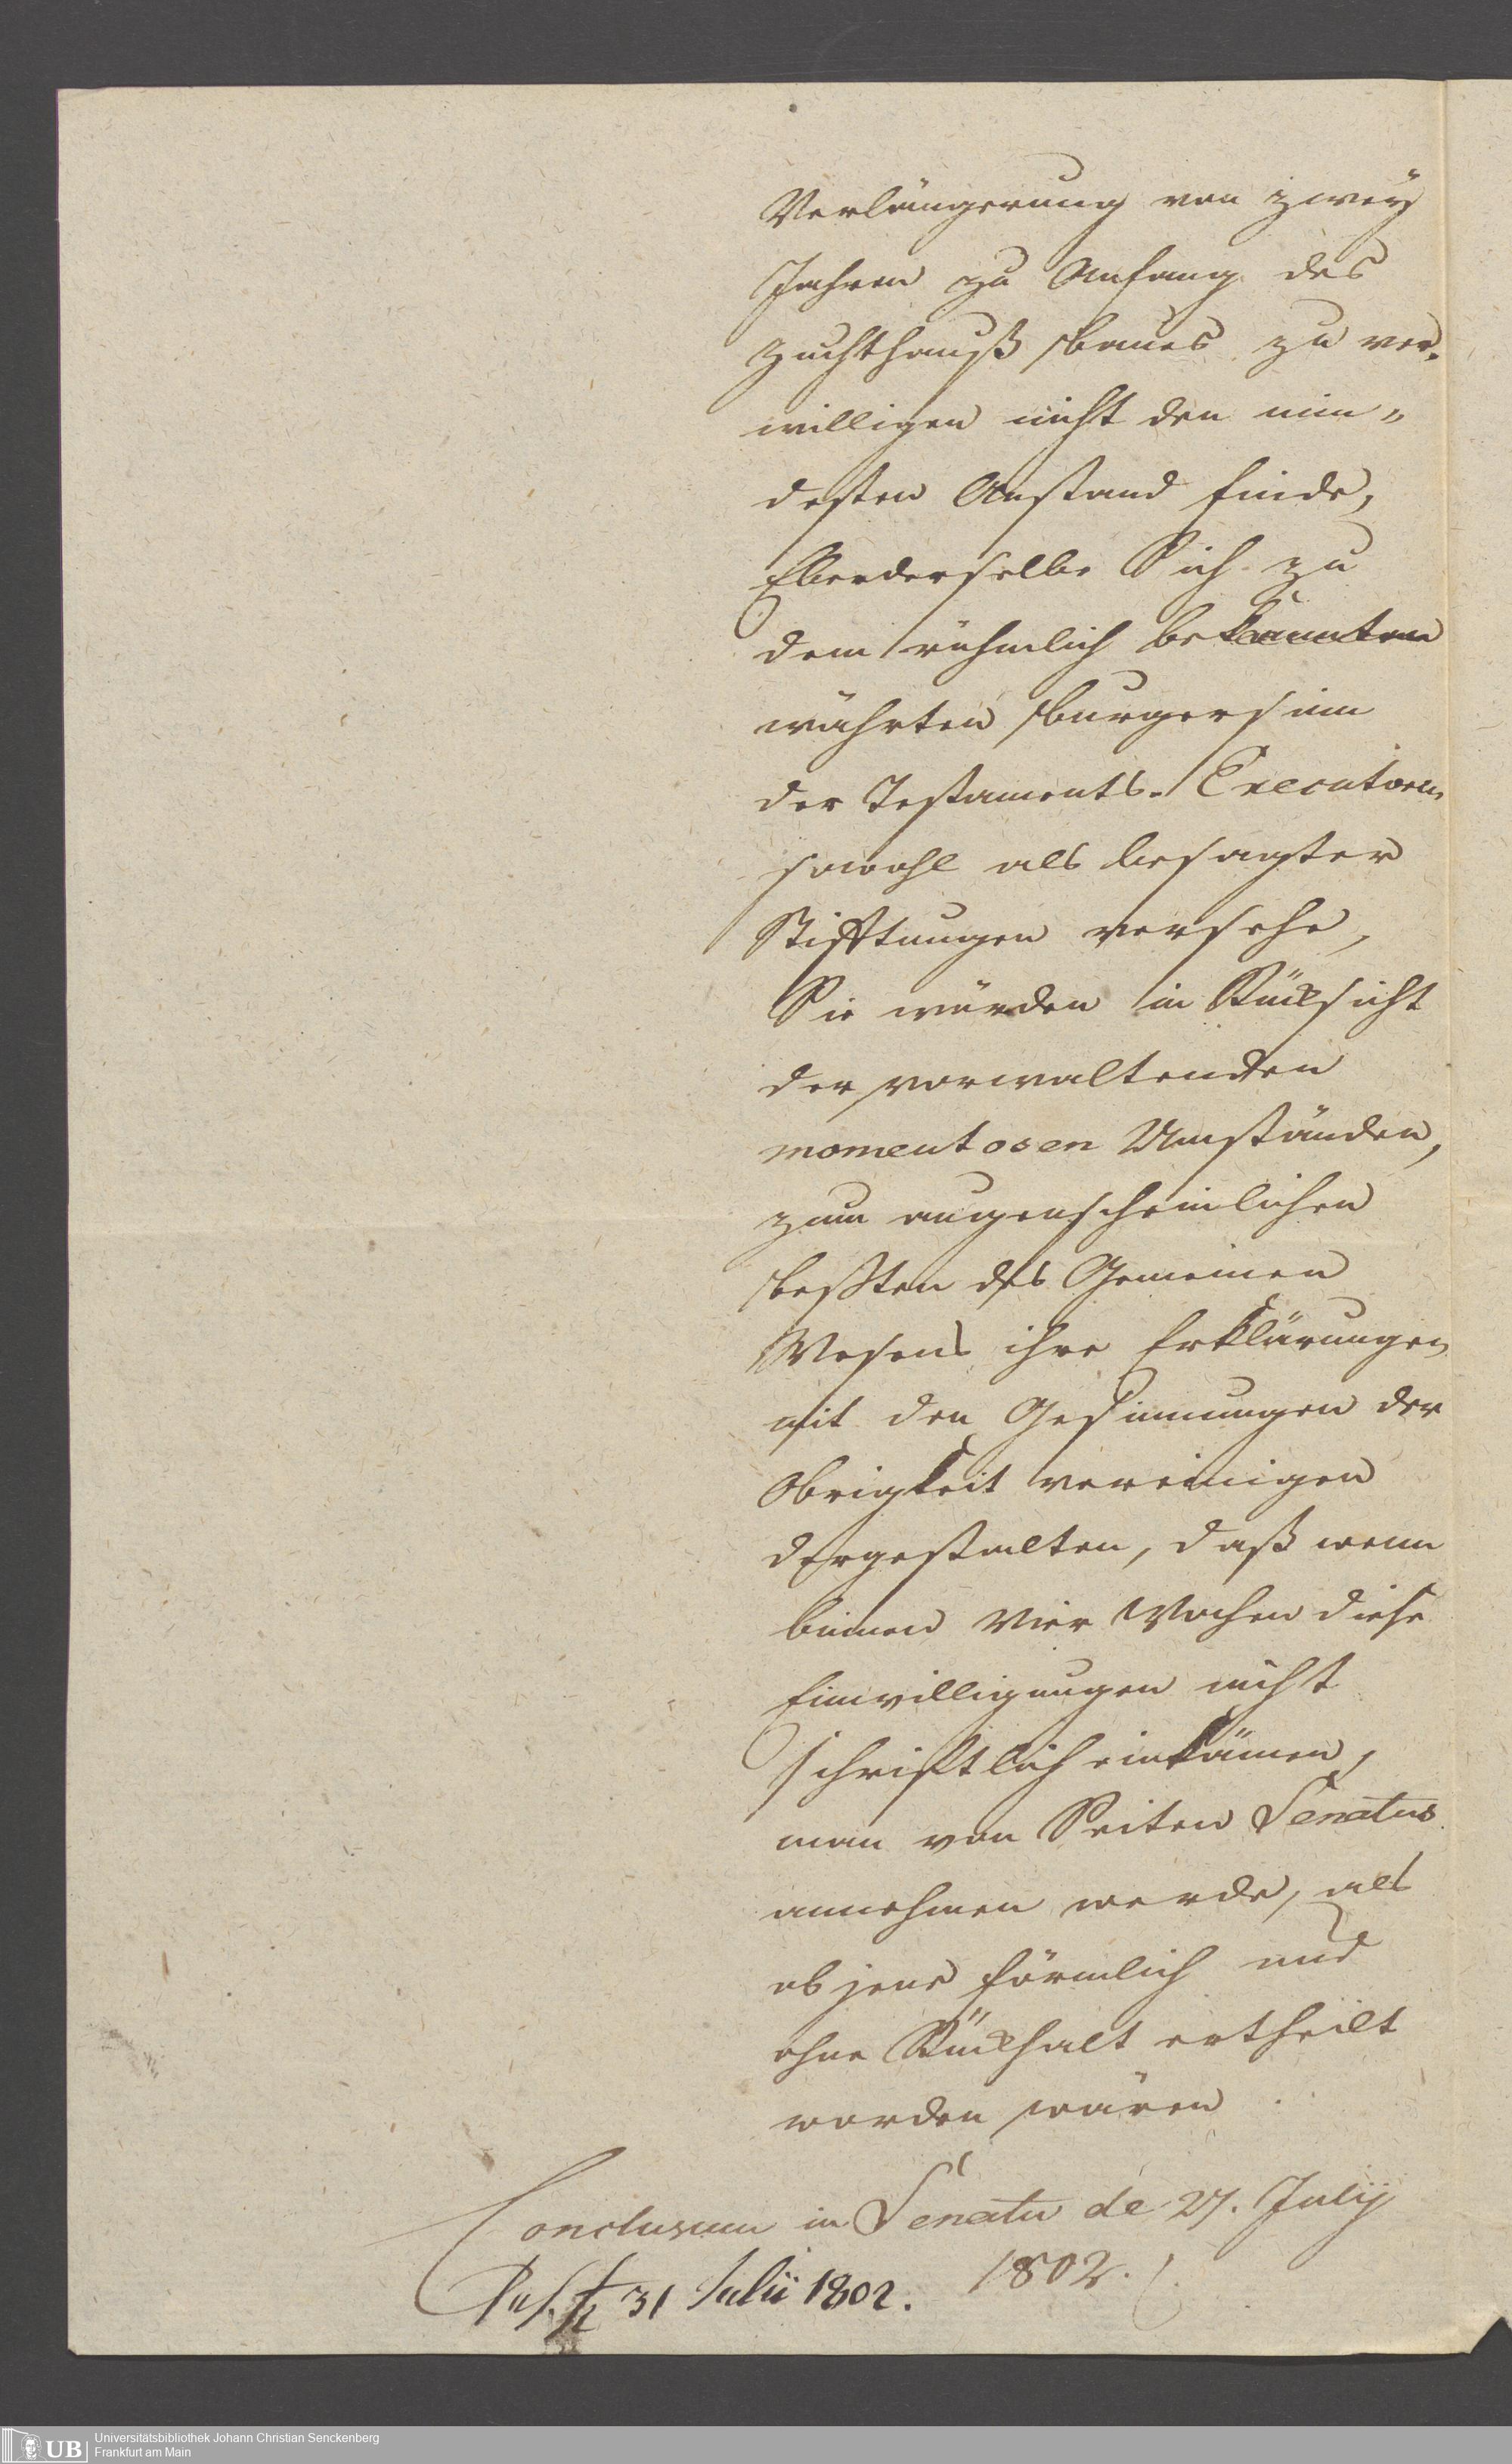 Verlängerung von zwey
Jahren zu Anfang des
Zuchthauß baues zu ver-
willigen nicht den min„
desten Anstand finde,
Ebenderselbe Sich zu
dem rühmlich bekannten
währten burgersinn
der Testaments-Executoren
sowohl als besagter
Stifftungen versehe,
Sie würden in Rücksicht
der vorwaltenden
momentosen Umständen,
zum augenscheinlichen
besten des Gemeinen
Wesens ihre Erklärungen
mit den Gesinnungen der
Obrigkeit vereinigen
dergestalten, daß wenn
binnen vier Wochen diese
Einwilligungen nicht
schriftlich einkämen,
man von Seiten Senatus
annehmen werde, als
ob jene förmlich und
ohne Rückhalt ertheilt
worden wären.
Conclusum in Senatu de 27. Julij
1802.
31 Julii 1802.
UB
Universitätsbibliothek Johann Christian Senckenberg
Frankfurt am Main